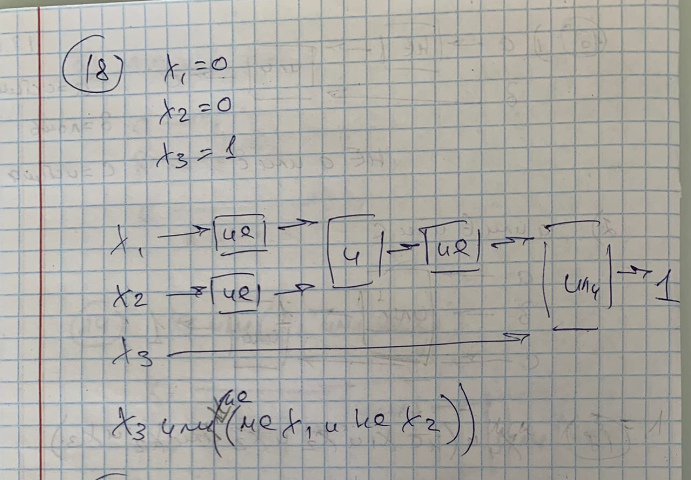 18 x₁ = 0
x₂ = 0
x₃ = 1
x₁ → не → и → не → или → 1
x₂ → не →
x₃ →
x₃ или (не (не x₁ и не x₂))